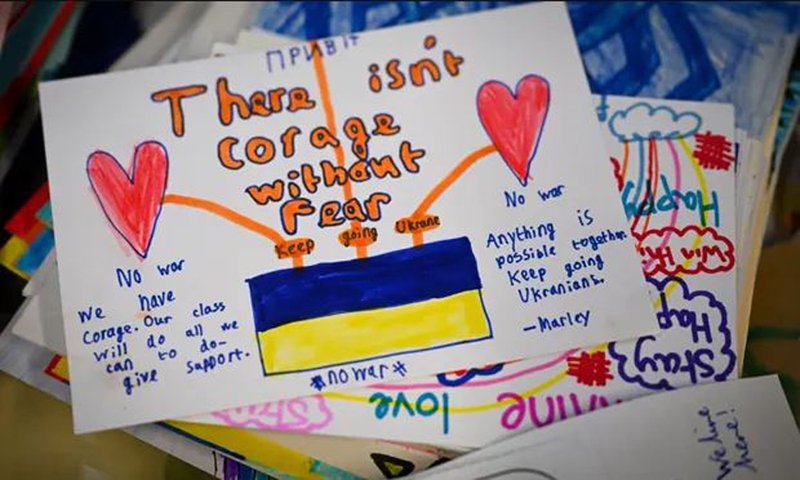 ПРИВІТ
There isn't
corage
without
Fear
Keep going Ukrane
No war
We have
corage. Our class
will do all we
can to do-
give support.
No war
Anything is
possible together.
Keep going
Ukranians.
—Marley
*no war*
Happy
Stay
Happ
love
We live
here!